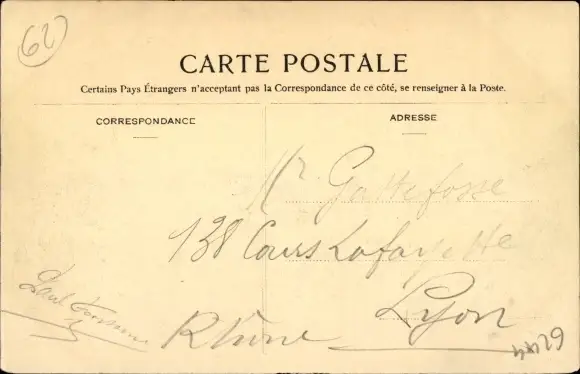 62
CARTE POSTALE
Certains Pays Étrangers n'acceptant pas la Correspondance de ce côté, se renseigner à la Poste.
CORRESPONDANCE
ADRESSE
Mr Gattefossé
138 Cours Lafayette
Lyon
Rhône
Paul